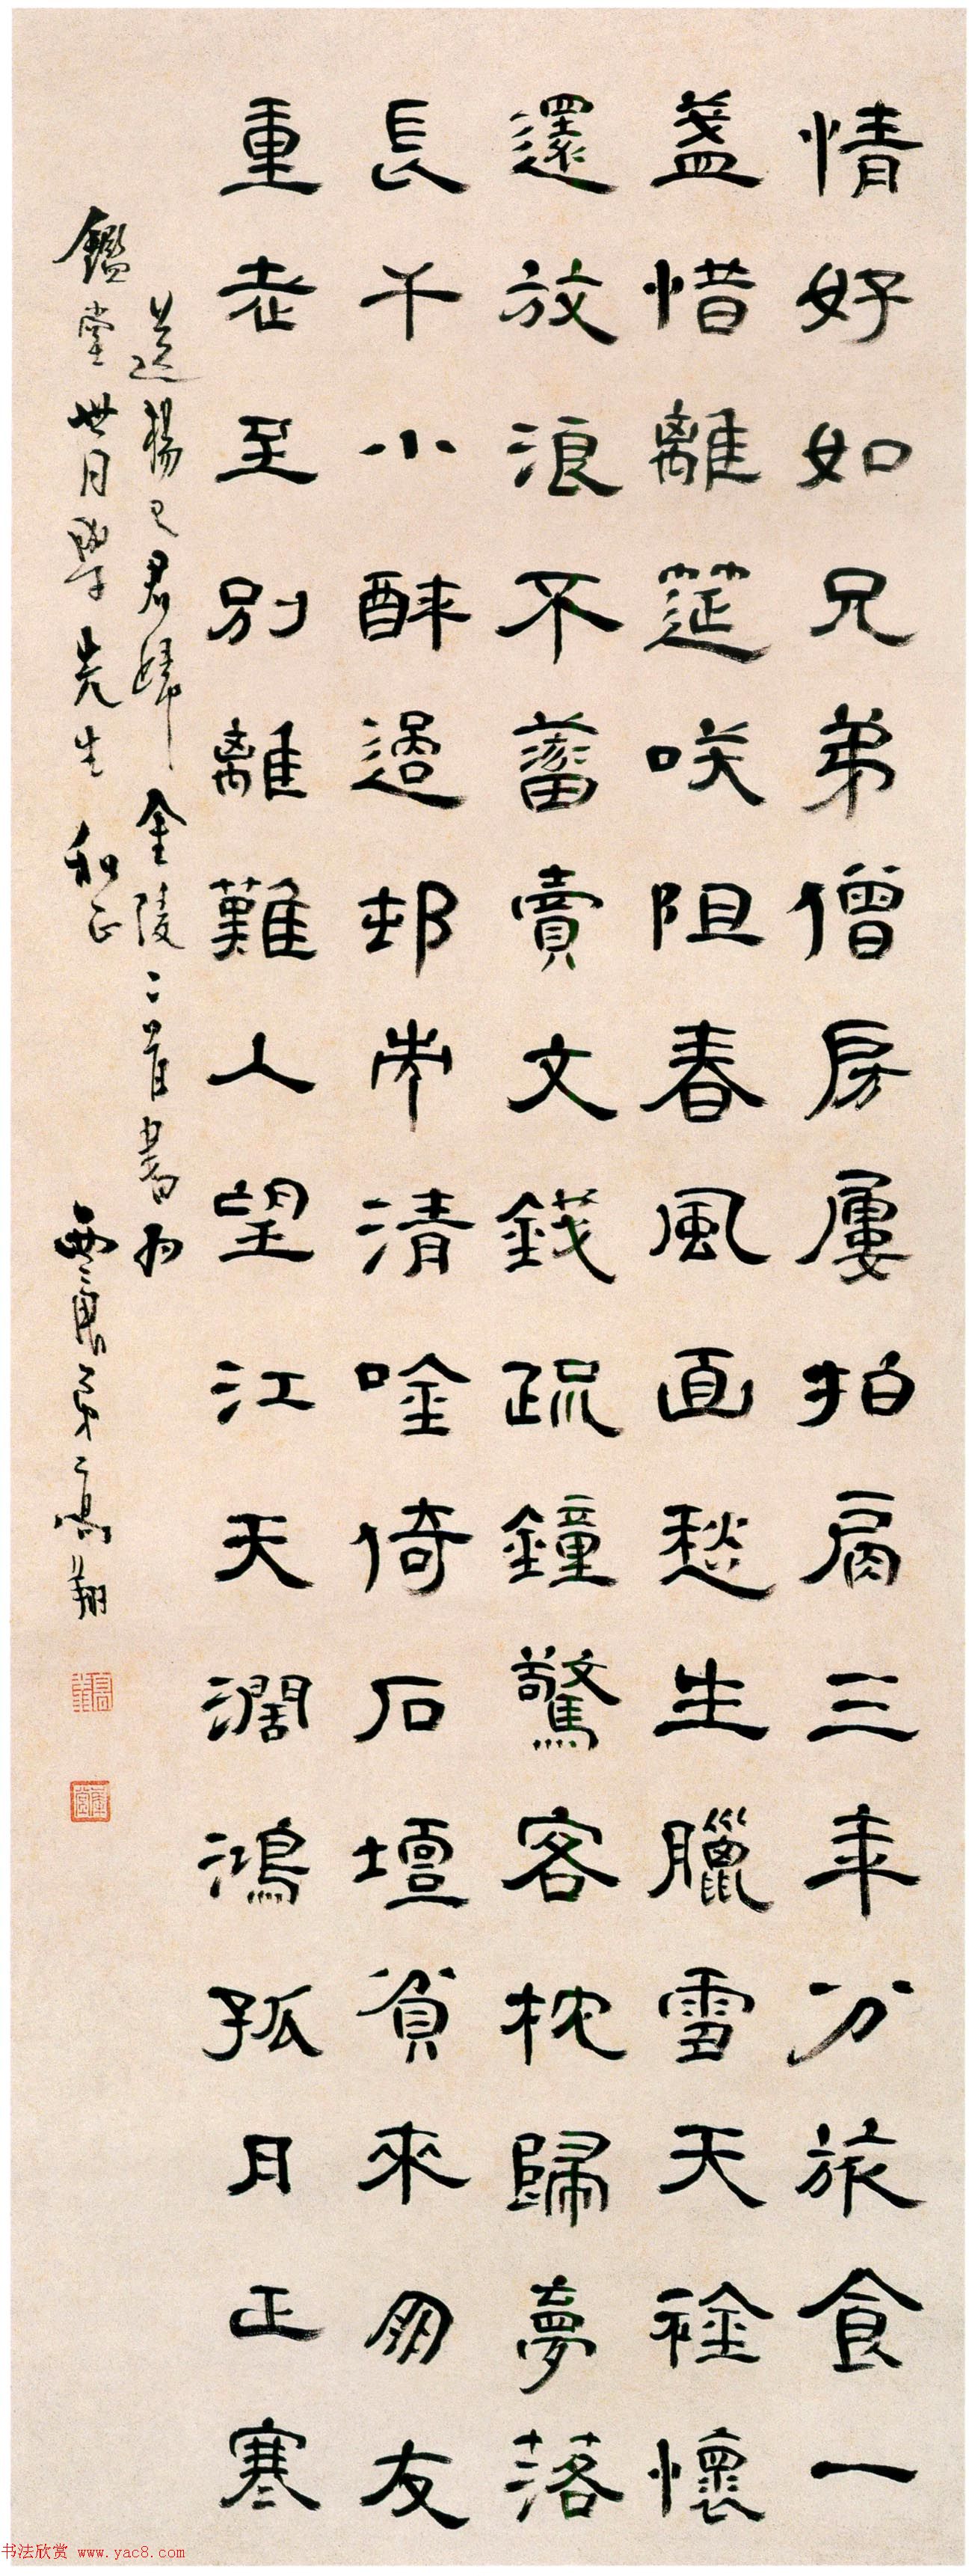 情好如兄弟僧房屢拍肩三年分旅食一
盞惜離筵咲阻春風面愁生臘雪天襟懷
還放浪不蓄賣文錢疏鐘驚客枕歸夢落
長干小醉過邨市清唫倚石壇貧來朋友
重老至別離難人望江天濶鴻孤月正寒
送楊已君歸金陵二首書為
鑑堂世同學先生和正 西唐弟高翔
书法欣赏 www.yac8.com